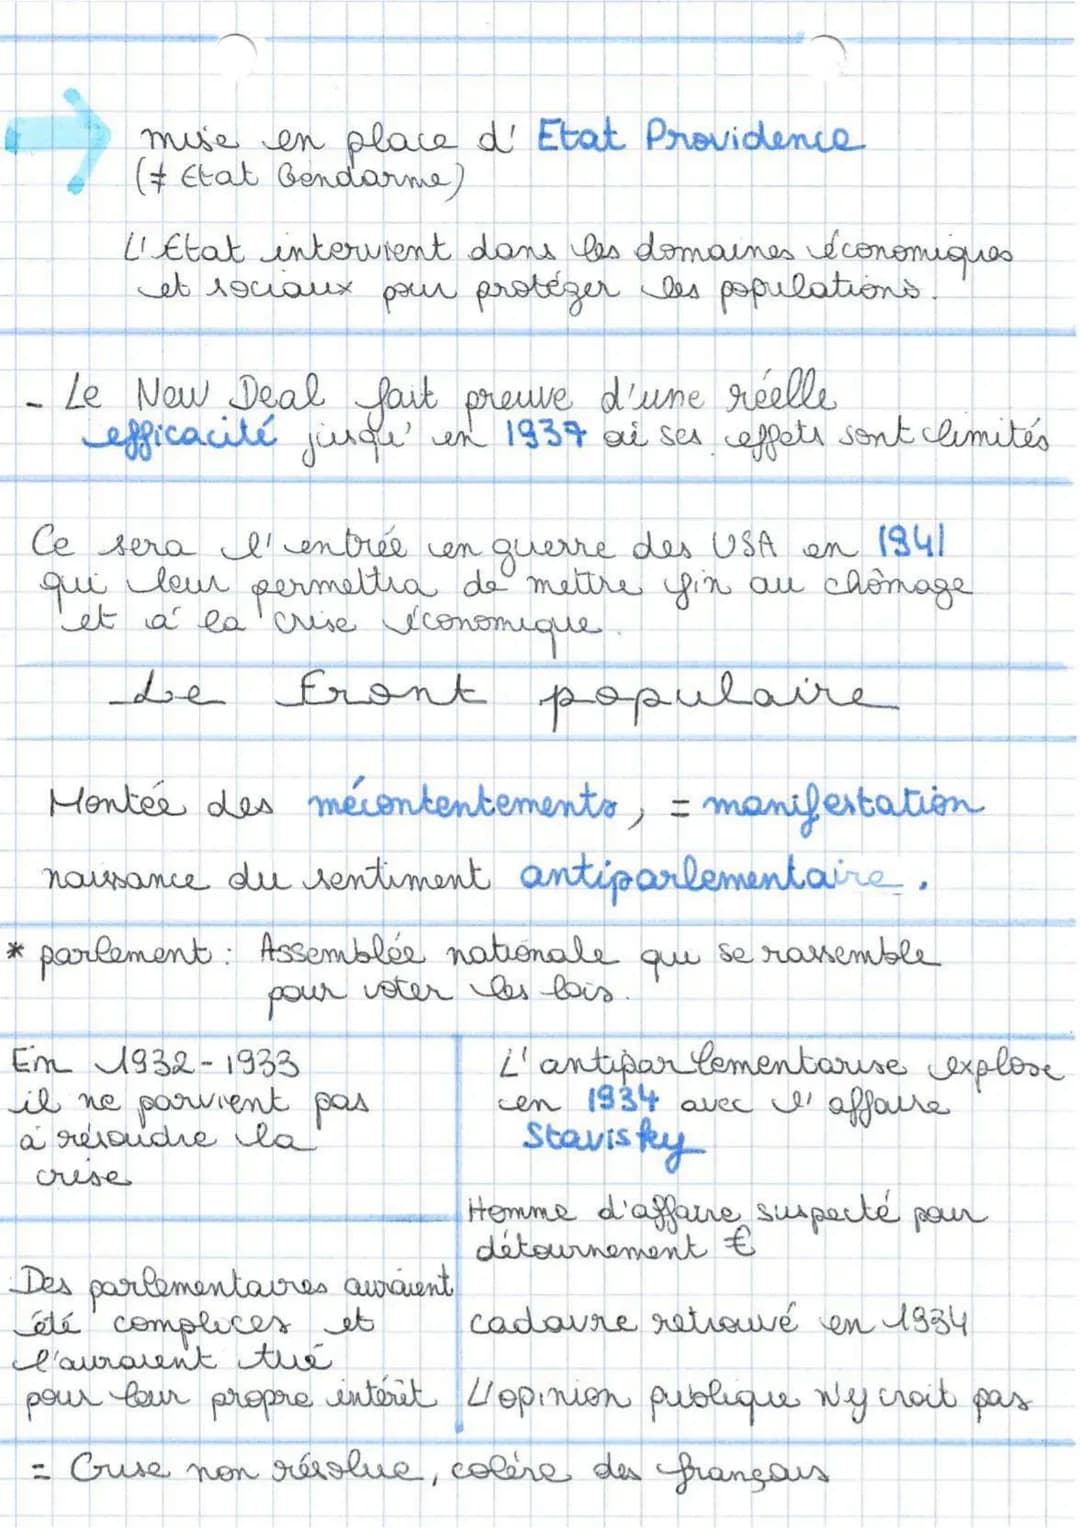 mise en place d' Etat Providence
(≠ Etat Gendarme)
L'Etat intervient dans les domaines économiques
et sociaux pour protéger les populations.
- Le New Deal fait preuve d'une réelle
efficacité jusqu'en 1937 où ses effets sont limités
Ce sera l'entrée en guerre des USA en 1941
qui leur permettra de mettre fin au chômage
et à la crise économique.
Le Front populaire
Montée des mécontentements, = manifestation
naissance du sentiment antiparlementaire.
* parlement : Assemblée nationale qui se rassemble
pour voter les lois.
En 1932-1933
il ne parvient pas
à résoudre la
crise
Des parlementaires auraient
été complices et
l'auraient tué
pour leur propre intérêt
L'antiparlementarise explose
en 1934 avec l'affaire
Stavisky
Homme d'affaire suspecté pour
détournement €
cadavre retrouvé en 1934
L'opinion publique n'y croit pas
= Crise non résolue, colère des français